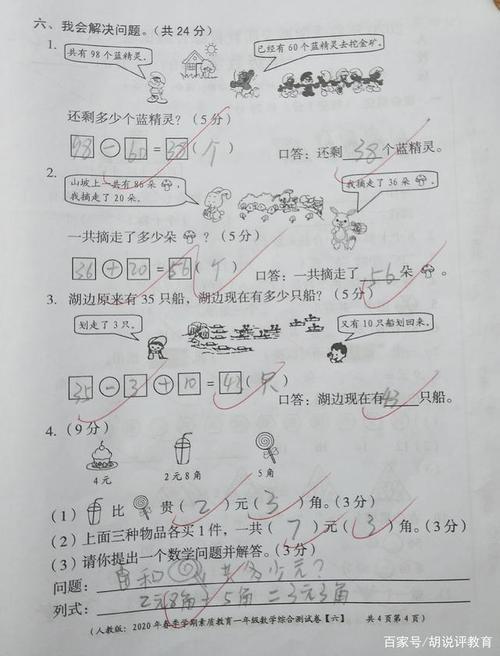 六、我会解决问题。(共24分)
1. 共有98个蓝精灵。 已经有60个蓝精灵去挖金矿。
还剩多少个蓝精灵?(5分)
98 - 60 = 38 (个) 口答:还剩 38 个蓝精灵。
2. 山坡上一共有86朵 , 我摘走了36朵 。
我摘走了20朵。
一共摘走了多少朵 ?(5分)
36 + 20 = 56 (个) 口答:一共摘走了 56 朵 。
3. 湖边原来有35只船,湖边现在有多少只船?(5分)
划走了3只。 又有10只船划回来。
35 - 3 + 10 = 43 (只)
口答:湖边现在有 43 只船。
4. (9分)
4元 2元8角 5角
(1) 比 贵( 2 )元( 3 )角。(3分)
(2) 上面三种物品各买1件,一共( 7 )元( 3 )角。(3分)
(3) 请你提出一个数学问题并解答。(3分)
问题: 和 共多少元?
列式: 2元8角+5角=3元3角
(人教版:2020年春季学期素质教育一年级数学综合测试卷【六】 共4页第4页)
百家号/胡说评教育